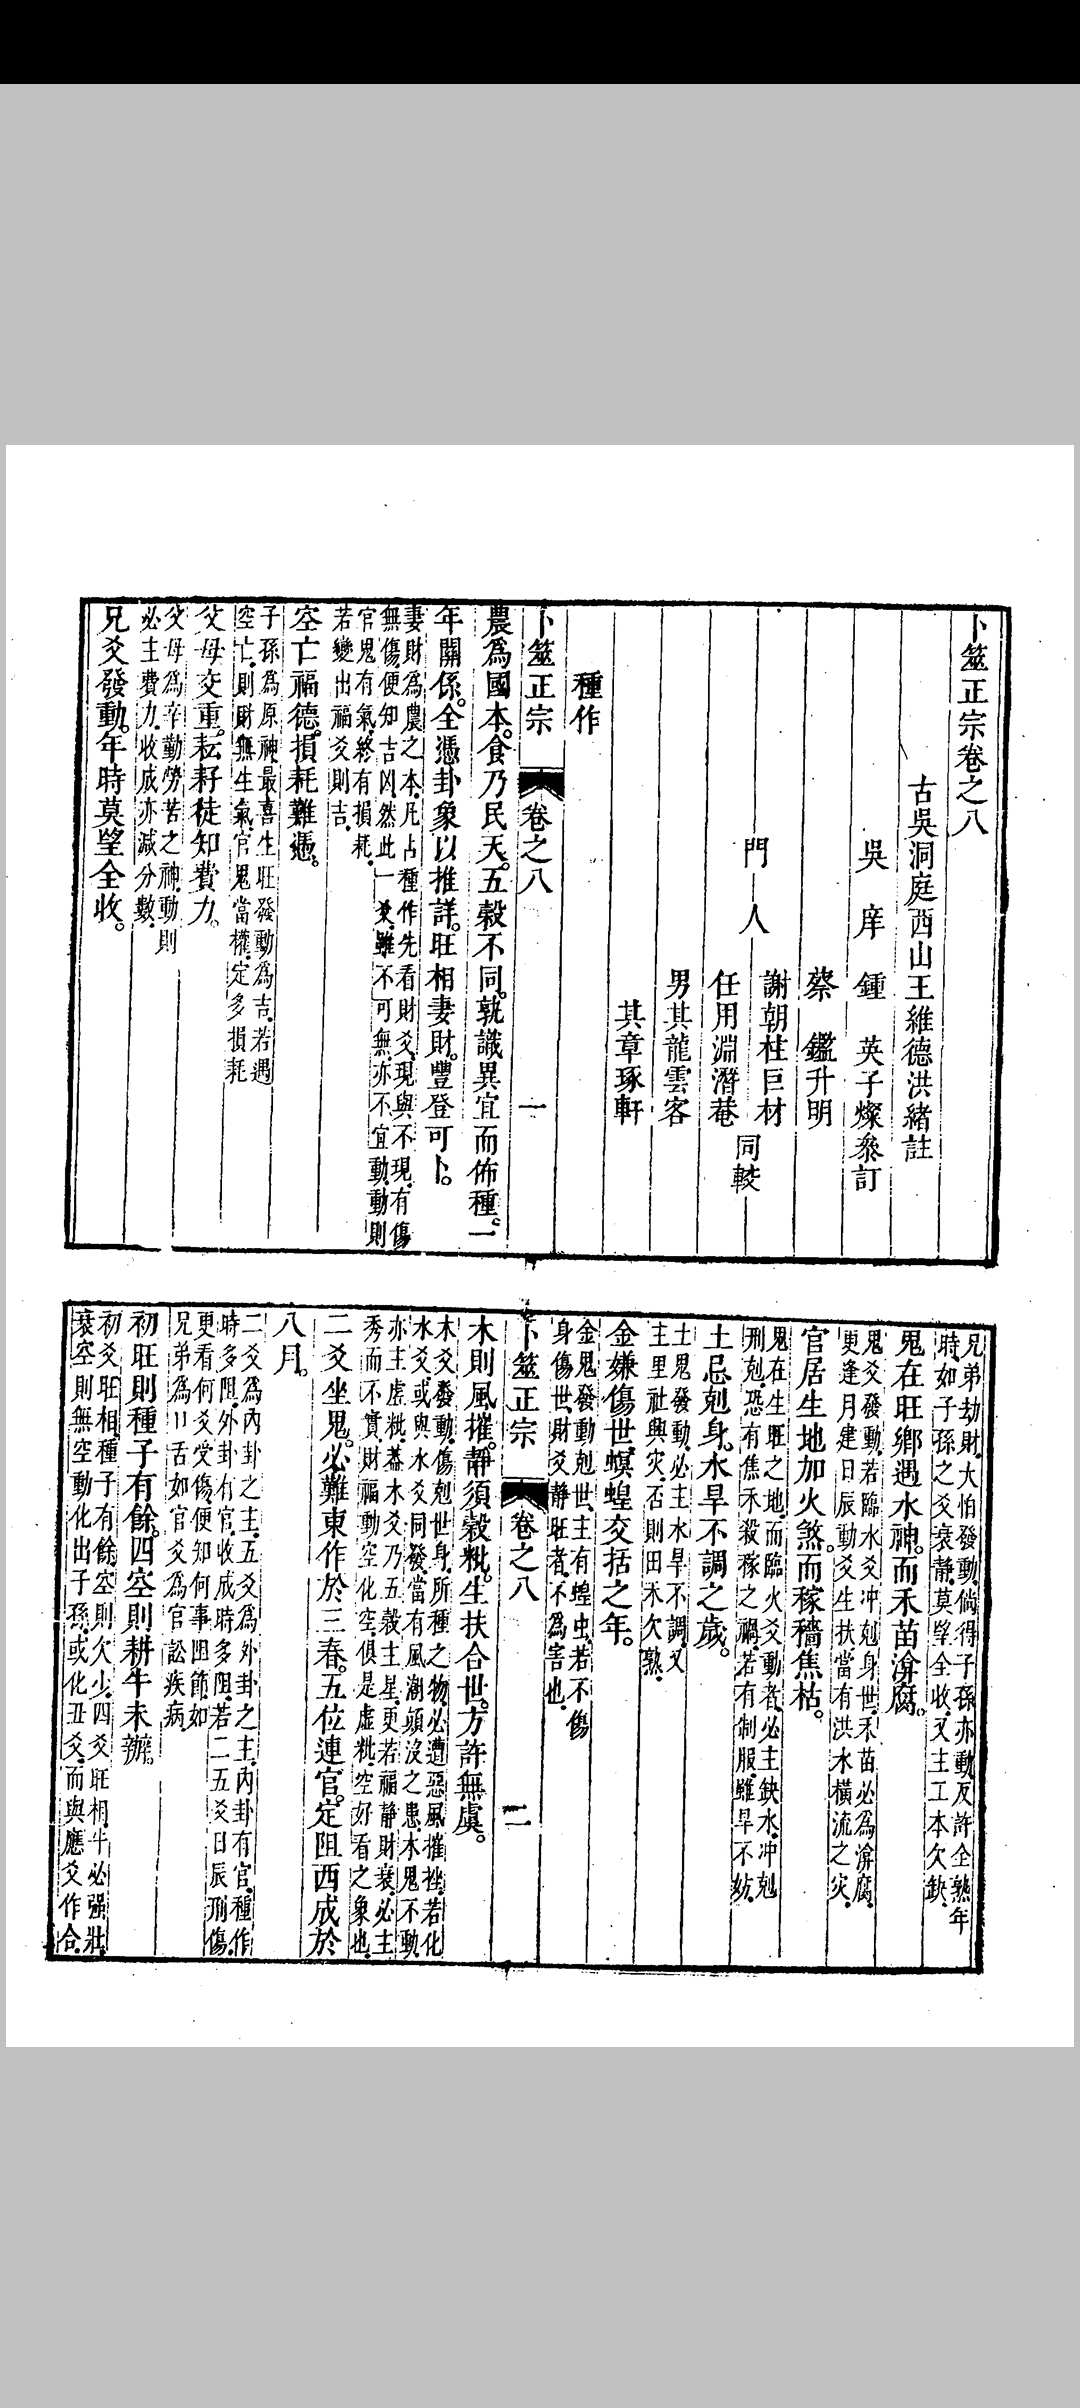 卜筮正宗卷之八
古吳洞庭西山王維德洪緒註
吳庠鍾英子燦叅訂
蔡鑑升明
門人
謝朝柱巨材
任用淵潛菴
同較
男其龍雲客
其章琢軒
種作
卜筮正宗
卷之八
一
農爲國本。食乃民天。五穀不同。孰識異宜而佈種。一
年關係。全憑卦象以推詳。旺相妻財。豐登可卜。
妻財爲農之本.凡占種作先看財爻.現與不現.有傷
無傷.便知吉凶.然此一爻.雖不可無.亦不宜動.動則
官鬼有氣.終有損耗.
若變出福爻則吉.
空亡福德。損耗難憑。
子孫爲原神.最喜生旺發動爲吉.若遇
空亡.則財無生氣.官鬼當權.定多損耗
父母交重。耘耔徒知費力。
父母爲辛勤勞苦之神.動則
必主費力.收成亦減分數.
兄爻發動。年時莫望全收。
兄弟劫財.大怕發動.倘得子孫亦動.反許全熟年
時.如子孫之爻衰靜.莫望全收.又主工本欠缺.
鬼在旺鄉遇水神。而禾苗渰腐。
鬼爻發動.若臨水爻冲剋身世.禾苗必爲渰腐.
更逢月建日辰動爻生扶.當有洪水橫流之灾.
官居生地加火煞。而稼穡焦枯。
鬼在生旺之地.而臨火爻動者.必主缺水.冲剋
刑剋.恐有焦禾殺稼之禍.若有制服.雖旱不妨.
土忌剋身。水旱不調之歲。
土鬼發動.必主水旱不調.又
主里社興灾.否則田禾欠熟.
金嫌傷世。螟蝗交括之年。
金鬼發動剋世.主有蝗虫.若不傷
身傷世.財爻靜旺者.不爲害也.
卜筮正宗
卷之八
二
木則風摧。靜須穀粃。生扶合世。方許無虞。
木爻發動.傷剋世身.所種之物.必遭惡風摧挫.若化
水爻.或與水爻同發.當有風潮顛沒之患.木鬼不動
亦主虛粃.蓋木爻乃五穀主星.更若福靜財衰.必主
秀而不實.財福動空化空.俱是虛粃.空好看之象也.
二爻坐鬼。必難東作於三春。五位連官。定阻西成於
八月。
二爻爲內卦之主.五爻爲外卦之主.內卦有官.種作
時多阻.外卦有官.收成時多阻.若二五爻日辰刑傷.
更看何爻受傷.便知何事阻節.如
兄弟爲口舌.如官爻爲官訟疾病.
初旺則種子有餘。四空則耕牛未辦。
初爻旺相.種子有餘.空則欠少.四爻旺相.牛必强壯.
衰空則無.空動化出子孫.或化丑爻.而與應爻作合.